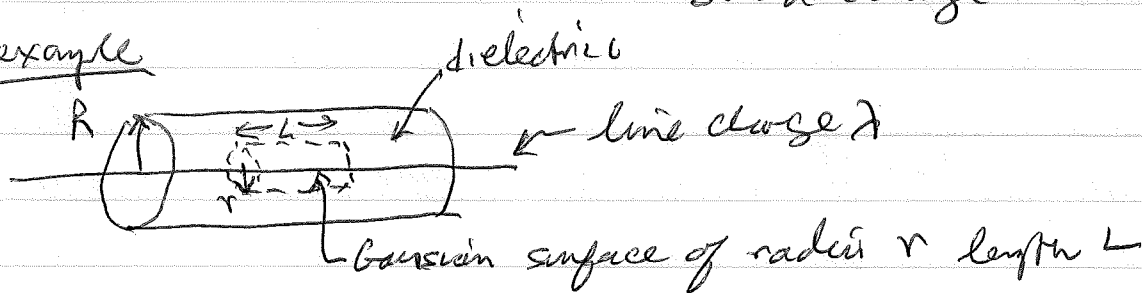 example
dielectric
R
L
line charge λ
r
Gaussian surface of radius r length L